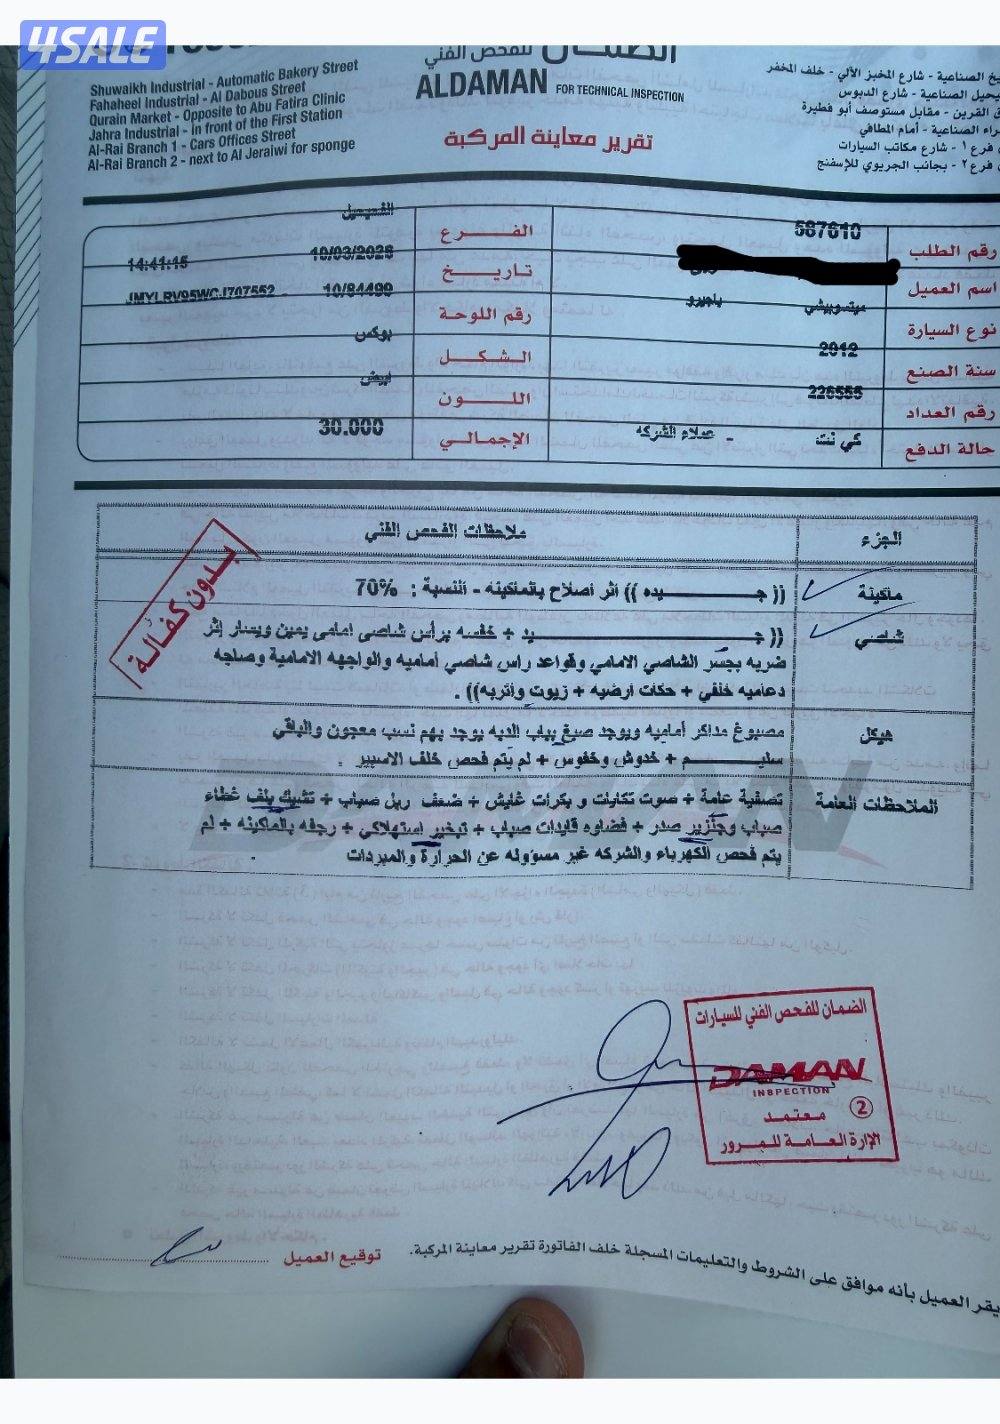 4SALE
Shuwaikh Industrial - Automatic Bakery Street
Fahaheel Industrial - Al Dabous Street
Qurain Market - Opposite to Abu Fatira Clinic
Jahra Industrial - in front of the First Station
Al-Rai Branch 1 - Cars Offices Street
Al-Rai Branch 2 - next to Al Jeraiwi for sponge
للفحص الفني
ALDAMAN FOR TECHNICAL INSPECTION
الصناعية - شارع المخبز الآلي - خلف المخفر
الصناعية - شارع الدبوس
القرين - مقابل مستوصف أبو فطيرة
الصناعية - أمام المطافي
فرع ١ - شارع مكاتب السيارات
فرع ٢ - بجانب الجريوي للإسفنج
تقرير معاينة المركبة
رقم الطلب 587610 الفرع الفحيحيل
اسم العميل تاريخ 10/03/2026 14:41:15
نوع السيارة ميتسوبيشي باجيرو رقم اللوحة 10/84499 - JMYLRV95WCJ707552
سنة الصنع 2012 الشكل بوكس
رقم العداد 226555 اللون ابيض
حالة الدفع كي نت - عملاء الشركه الإجمالي 30.000
الجزء ملاحظات الفحص الفني
بدون كفالة
ماكينة (( جـــيده )) اثر اصلاح بالماكينه - النسبة : 70%
شاصي (( جـــيد + خفسه برأس شاصي امامي يمين ويسار إثر
ضربه بجسر الشاصي الامامي وقواعد راس شاصي أماميه والواجهه الامامية وصاجه
دعاميه خلفي + حكات ارضيه + زيوت واتربه)) .
هيكل مصبوغ مداكر أماميه ويوجد صبغ بباب الدبه يوجد بهم نسب معجون والباقي
سليـــم + خدوش وخفوس + لم يتم فحص خلف الاسبير .
الملاحظات العامة تصفية عامة + صوت تكايات و بكرات غايش + ضعف ربل صباب + تشيك بلف غطاء
صباب وجنزير صدر + فضاوه قايدات صباب + تبخير استهلاكي + رجفه بالماكينه + لم
يتم فحص الكهرباء والشركه غير مسؤوله عن الحرارة والمبردات
الضمان للفحص الفني للسيارات
DAMAN
INSPECTION
معتمد 2
الإرارة العامة للمرور
يقر العميل بأنه موافق على الشروط والتعليمات المسجلة خلف الفاتورة تقرير معاينة المركبة.
توقيع العميل